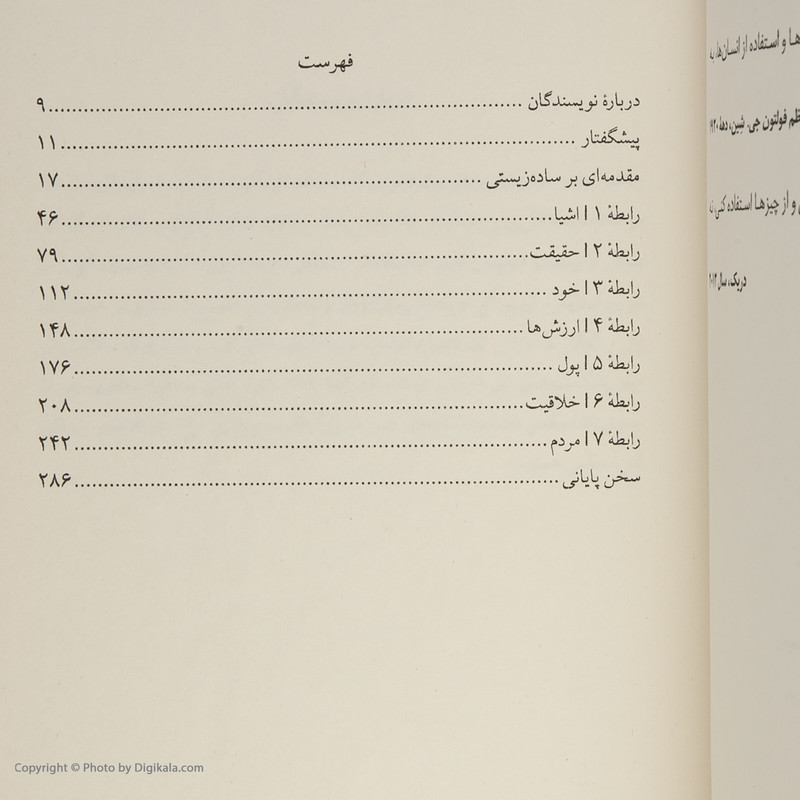 فهرست
دربارهٔ نویسندگان ........ ۹
پیشگفتار ........ ۱۱
مقدمه‌ای بر ساده‌زیستی ........ ۱۷
رابطهٔ ۱ | اشیا ........ ۴۶
رابطهٔ ۲ | حقیقت ........ ۷۹
رابطهٔ ۳ | خود ........ ۱۱۲
رابطهٔ ۴ | ارزش‌ها ........ ۱۴۸
رابطهٔ ۵ | پول ........ ۱۷۶
رابطهٔ ۶ | خلاقیت ........ ۲۰۸
رابطهٔ ۷ | مردم ........ ۲۴۲
سخن پایانی ........ ۲۸۶
ها و استفاده از انسان‌ها
فولتون جی. شین، دههٔ
و از چیزها استفاده
سال
Copyright © Photo by Digikala.com